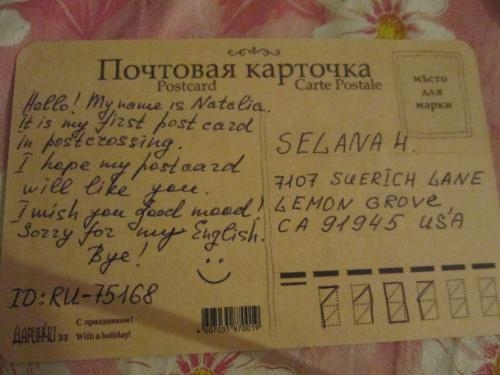 Почтовая карточка
Postcard
Carte Postale
мѣсто
для
марки
Hello! My name is Natalia.
It is my first post card
in postcrossing.
I hope my postcard
will like you.
I wish you good mood!
Sorry for my English.
Bye!
ID: RU-75168
SELANA H.
7107 SUERICH LANE
LEMON GROVE,
CA 91945 USA
С праздником!
23 With a holiday!
4607035870019